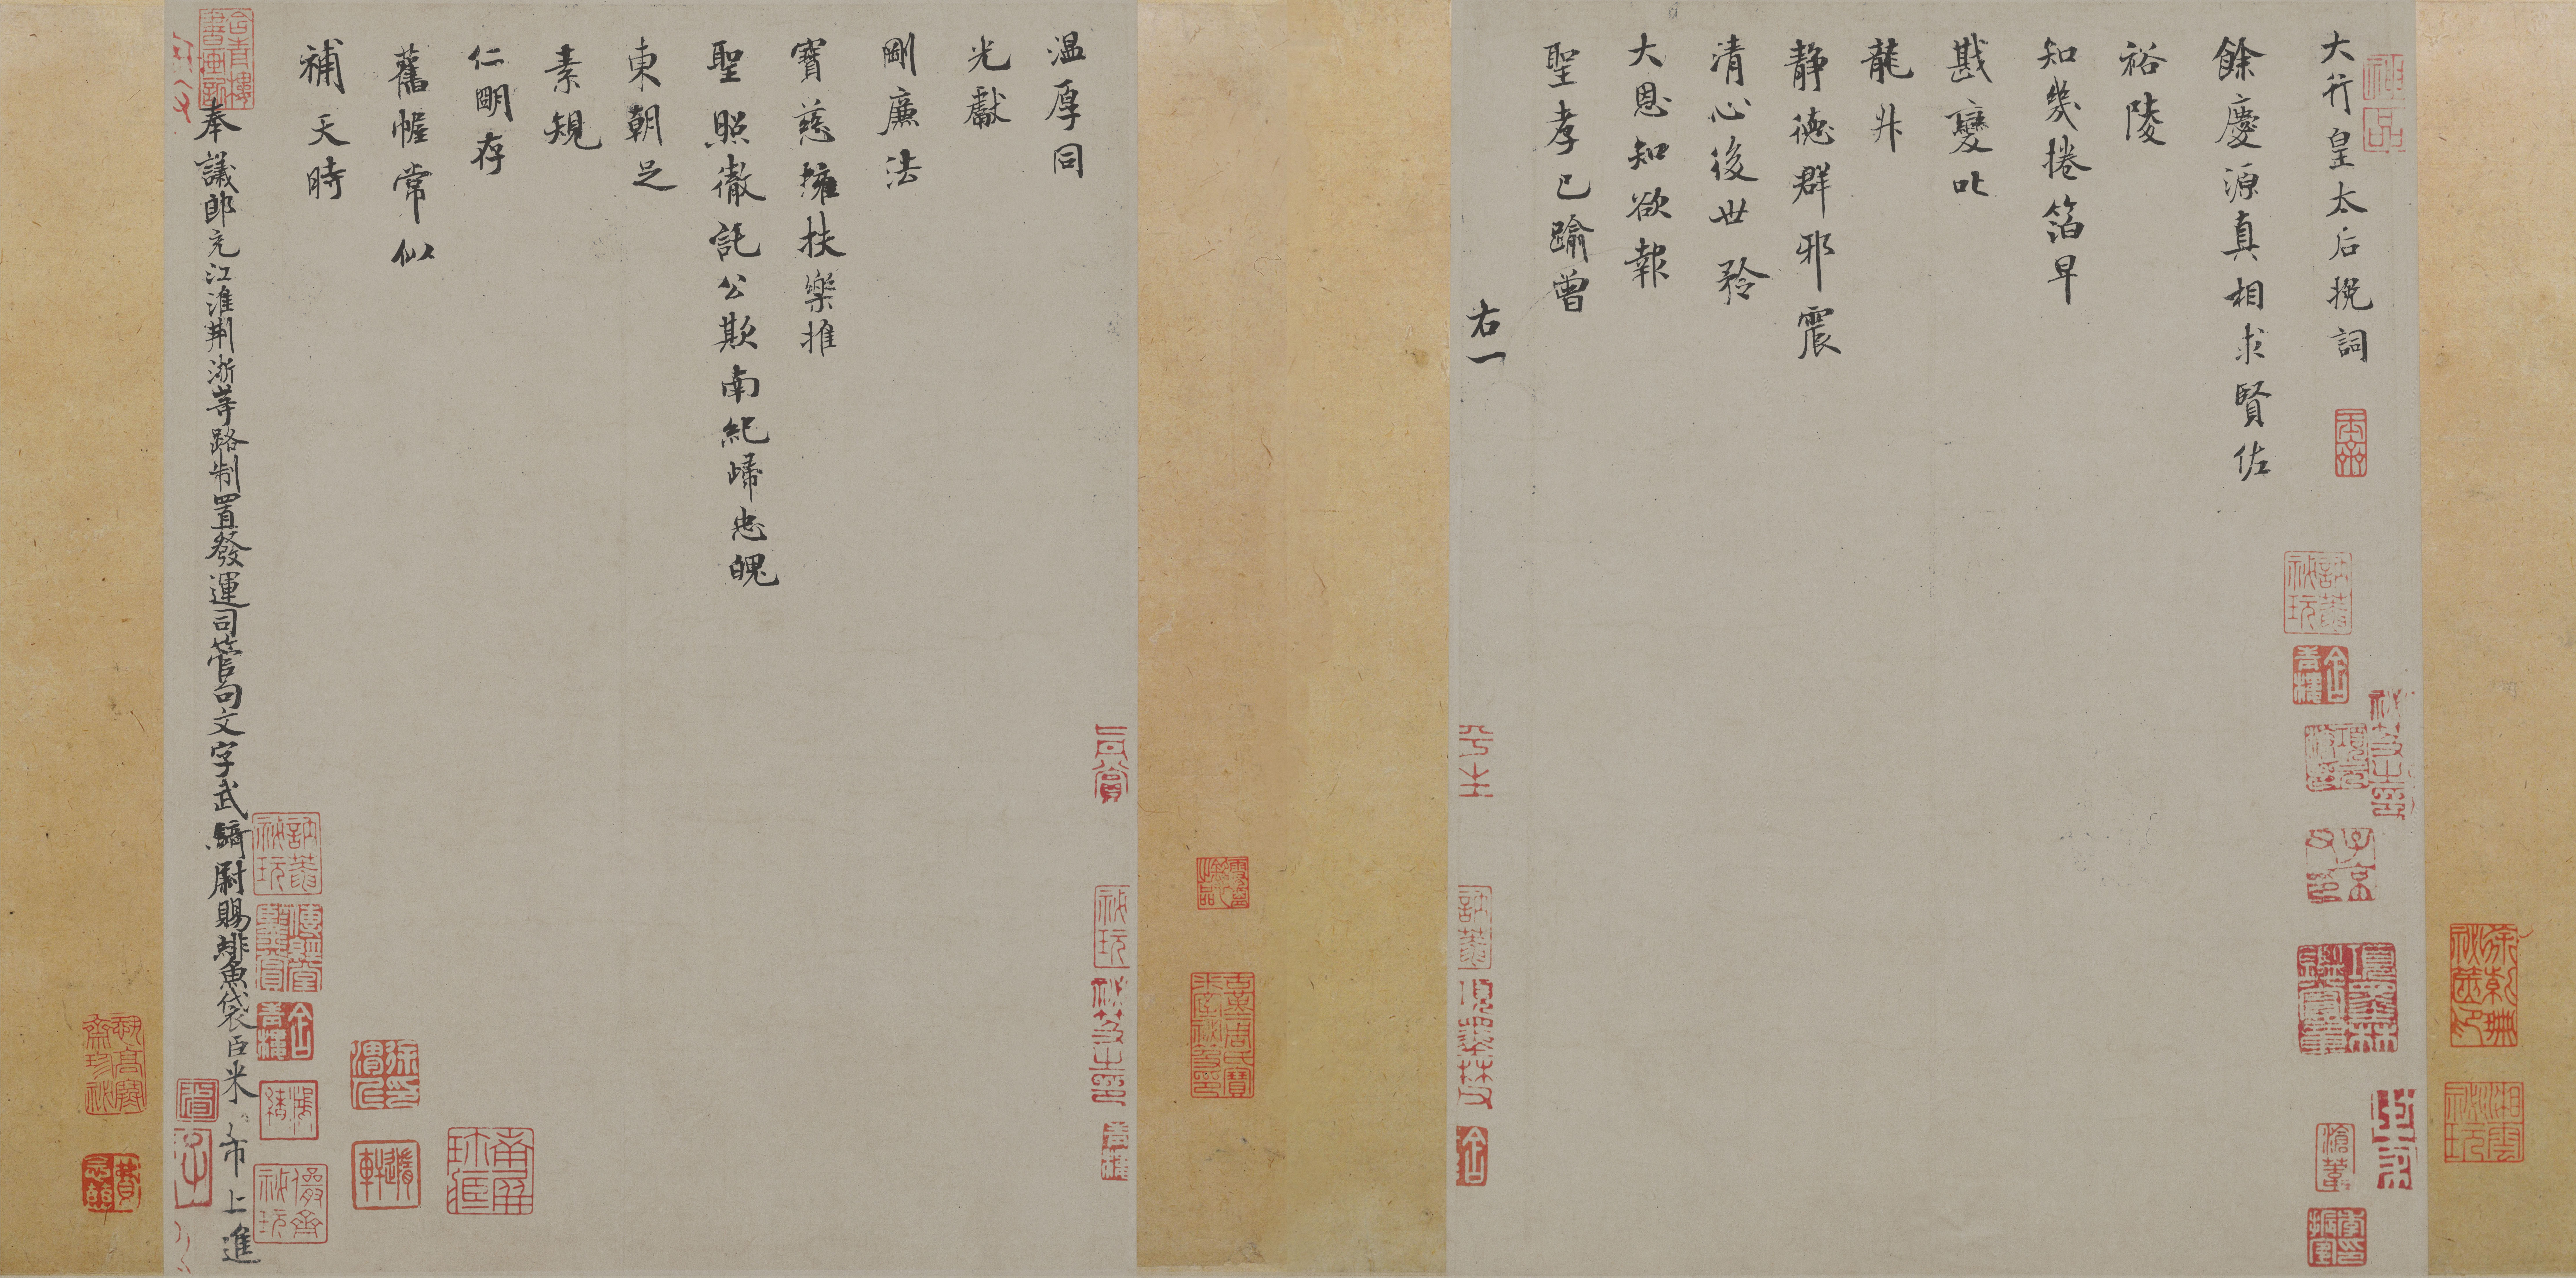 大行皇太后挽詞
餘慶源真相求賢佐
裕陵
知幾捲箔早
戡變叱
龍升
静德群邪震
清心後世矜
大恩知欲報
聖孝已踰曾
右一
温厚同
光獻
剛廉法
寶慈擁扶樂推
聖照徹託公欺南紀歸忠魄
東朝足
素規
仁明存
舊幄常似
補天時
奉議郎充江淮荆浙等路制置發運司管句文字武騎尉賜緋魚袋臣米芾上進